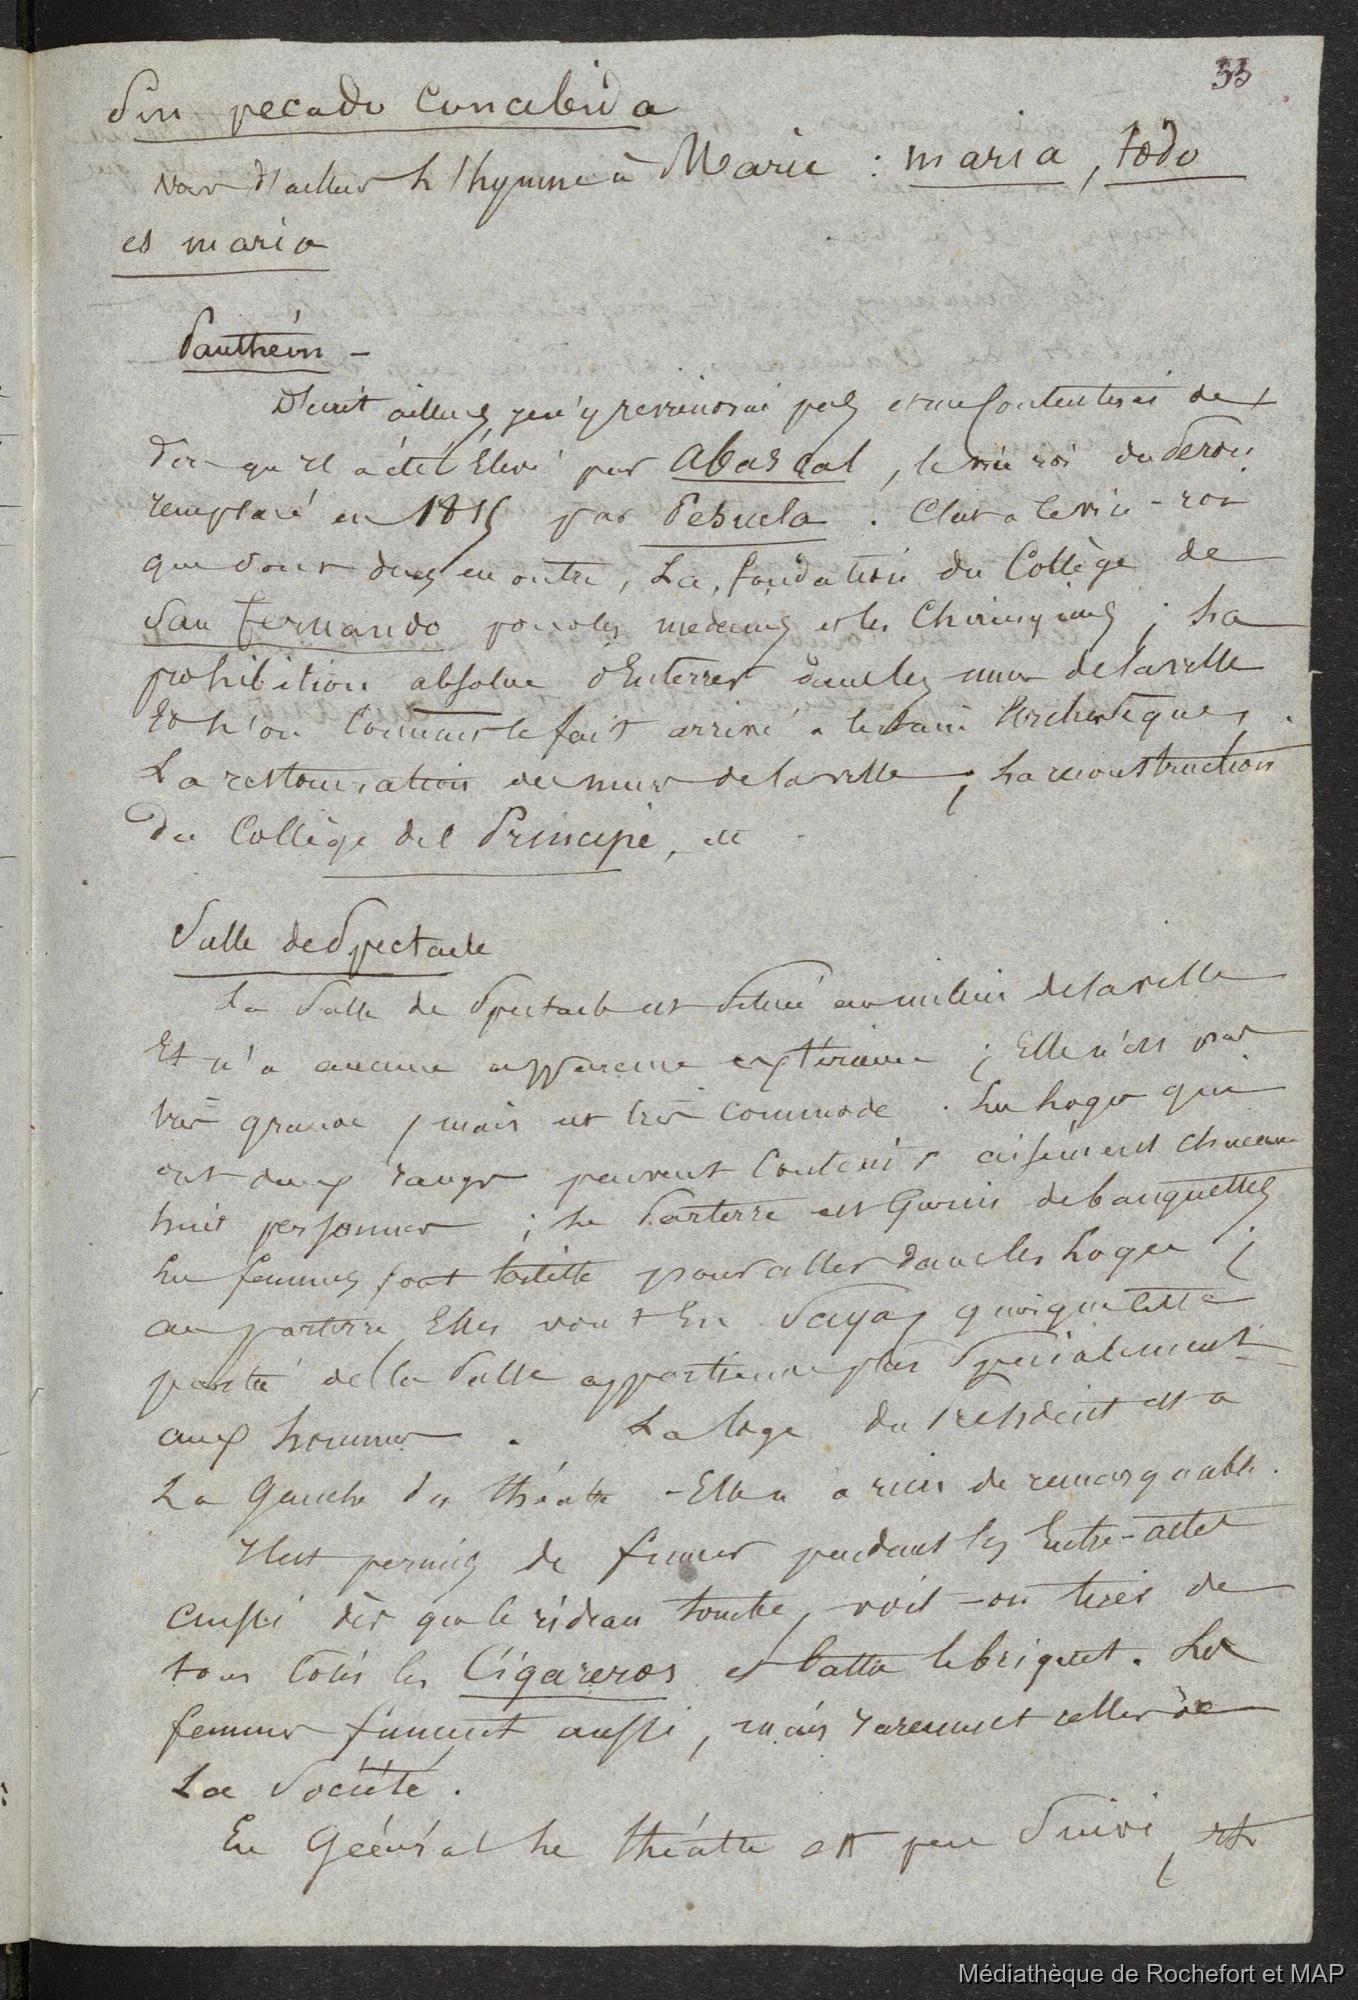 33
Sin pecado Concebida
Voir d'ailleurs L'hymne à Marie : maria, todo
es maria
Panthéon -
Décrit ailleurs, je n'y reviendrai pas et me Contenterai de
dire qu'il a été Elevé par Abascal, le vice roi du Perou
remplacé en 1815 par Pesuela. C'est a le vice-roi
que sont dues en outre, La fondation du Collège de
San Fernando pour les medecins et les Chirurgiens ; La
prohibition absolue d'Enterrer dans les murs de la ville
Et l'on Connait le fait arrivé a le Archevêque,
La restauration des murs de la ville ; La reconstruction
Du Collège del Principe, etc
Salle de Spectacle
La Salle de Spectacle est Située au milieu de la ville
Et n'a aucune apparence extérieure ; Elle n'est pas
très grande, mais est très commode. Les Loges qui
ont deux rangs peuvent Contenir aisément chacune
huit personnes ; Le Parterre est Garni de banquettes
Les femmes font toilette pour aller dans les Loges ;
au parterre Elles vont En Saya, quoique cette
partie de la Salle appartienne plus Spécialement
aux hommes. La loge du President est a
La Gauche du théatre - Elle n'a rien de remarquable.
Il est permis de fumer pendant les Entre-actes
aussi dès que le rideau tombe, voit-on tirer de
tous Cotés les Cigareros et battre le briquet. Les
femmes fument aussi, mais rarement celles de
La Société.
En Général Le théatre est peu Suivi, et
Médiathèque de Rochefort et MAP